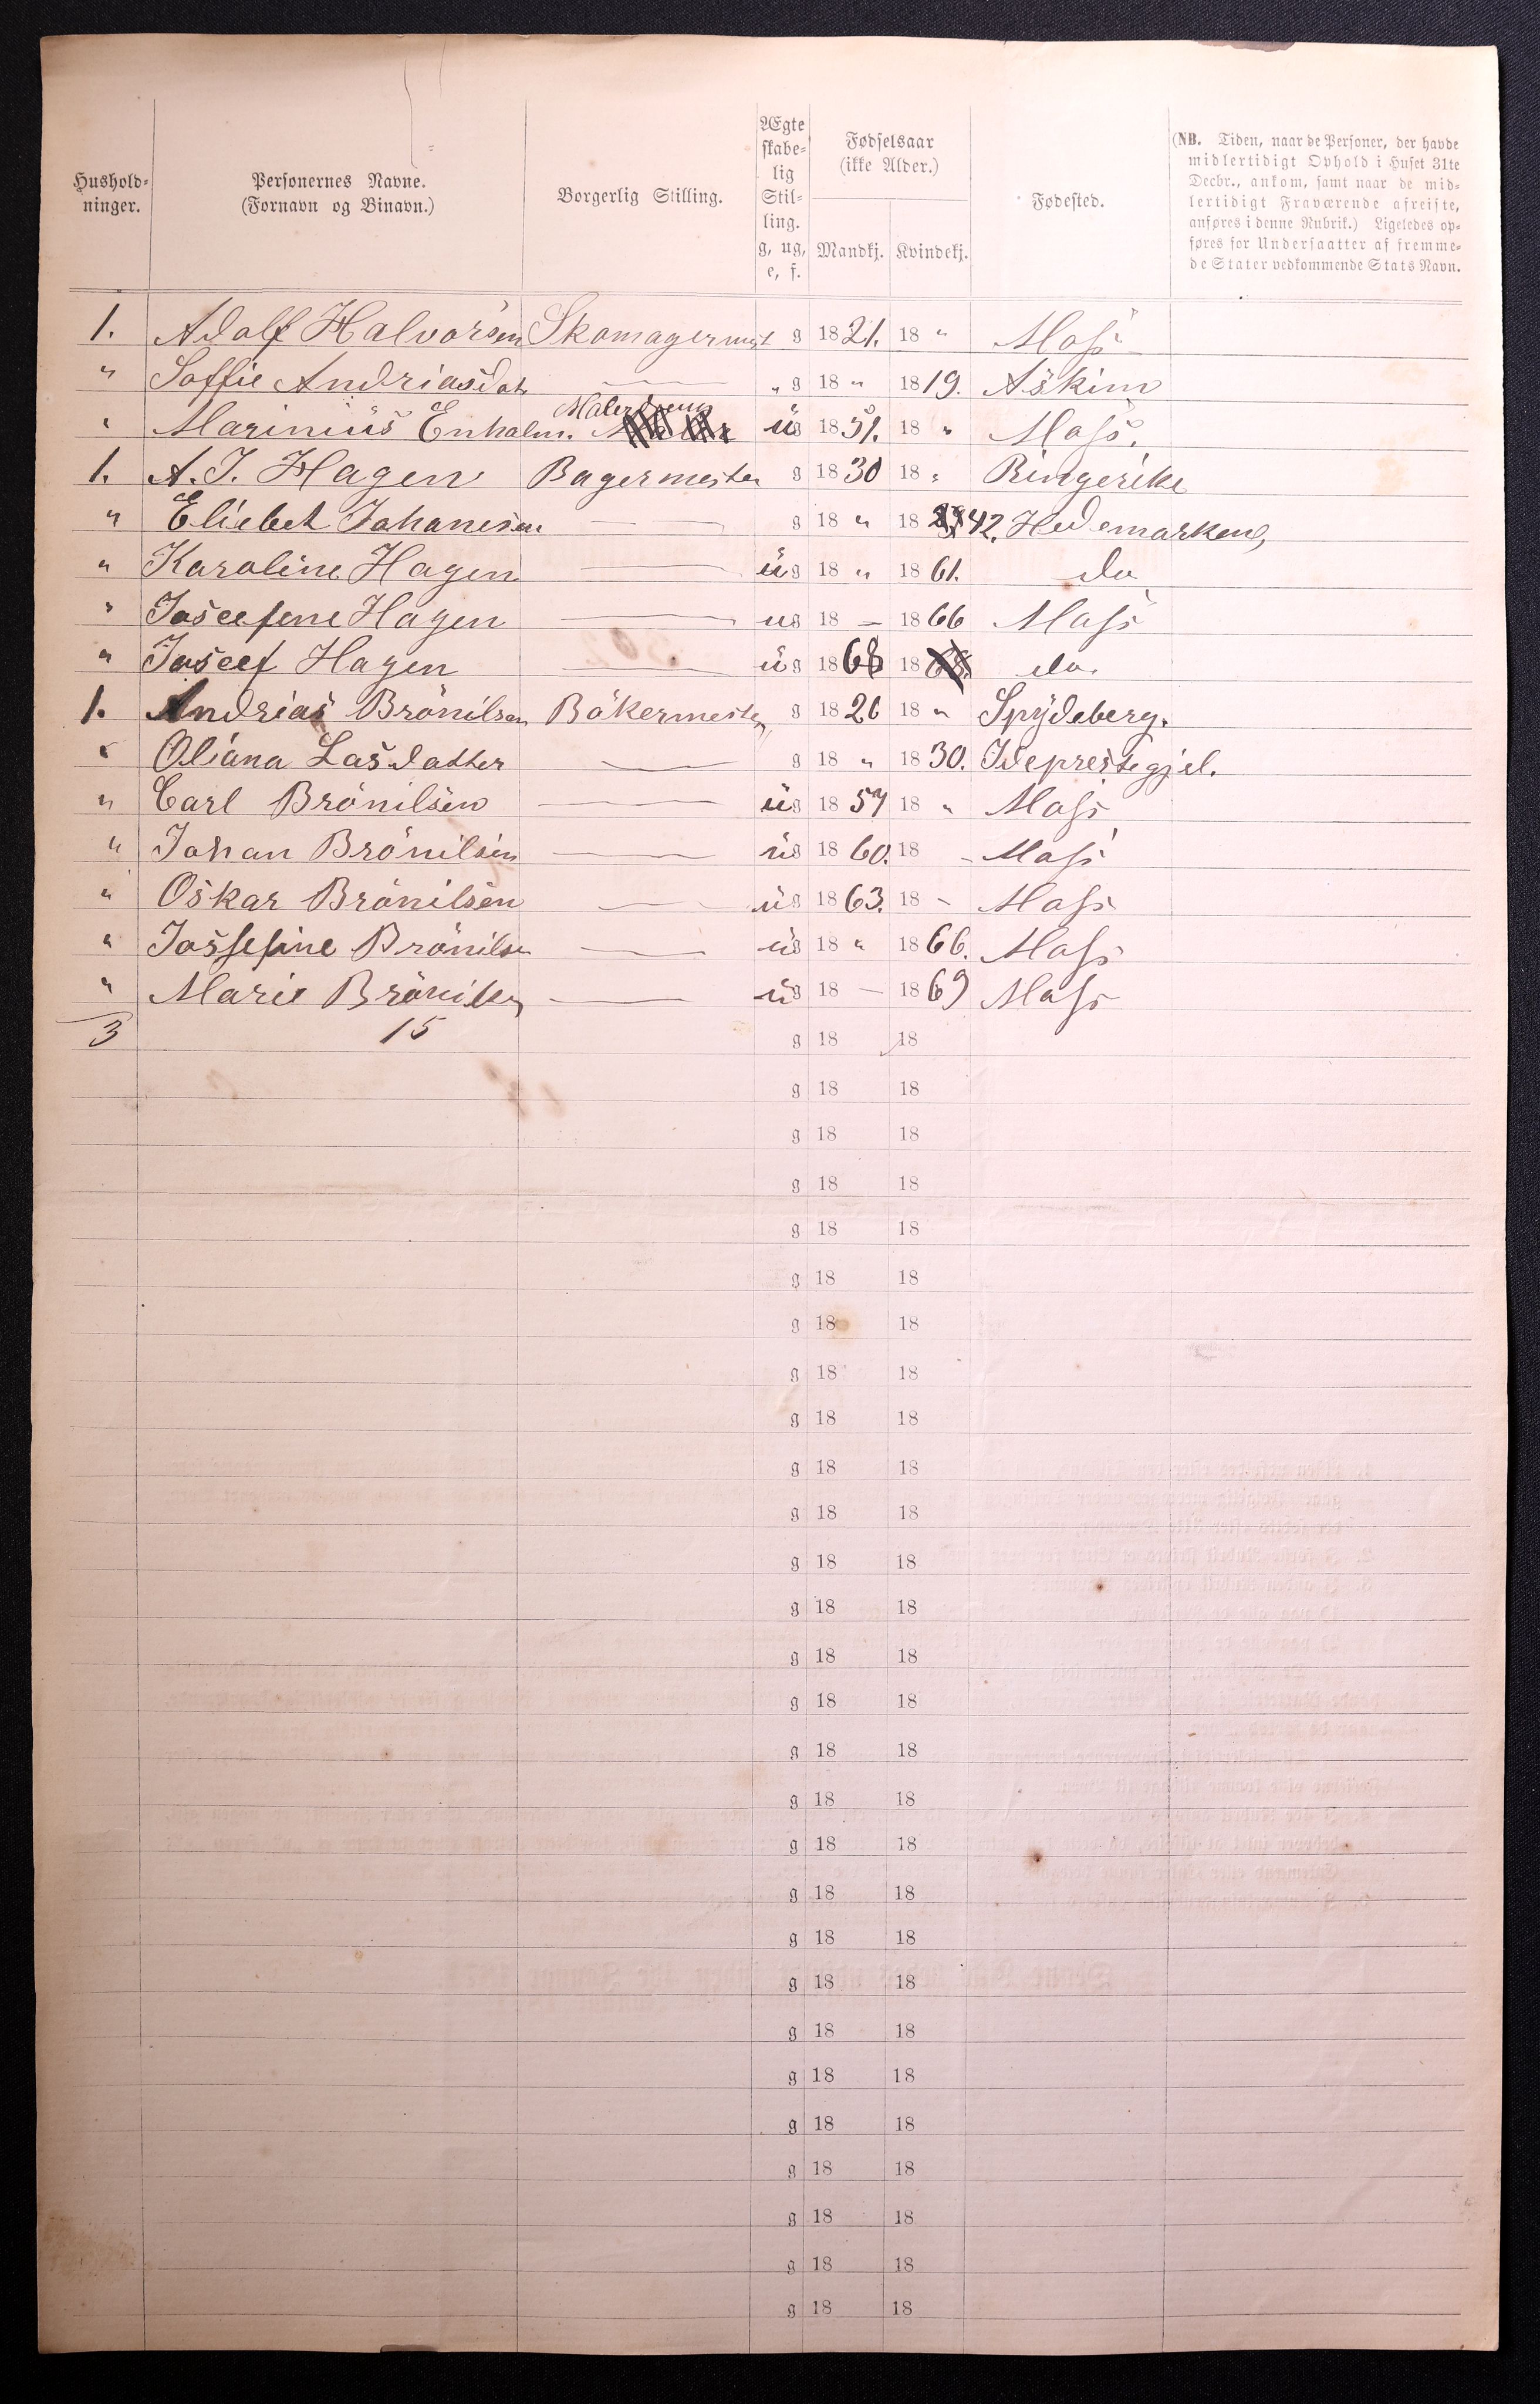 Hushold-
ninger.
Personernes Navne.
(Fornavn og Binavn.)
Borgerlig Stilling.
Ægte
skabe-
lig
Stil-
ling.
g, ug,
e, f.
Fødselsaar
(ikke Alder.)
Mandkj. Kvindekj.
Fødested.
(NB. Tiden, naar de Personer, der havde
midlertidigt Ophold i Huset 31te
Decbr., ankom, samt naar de mid-
lertidigt Fraværende afreiste,
anføres i denne Rubrik.) Ligeledes op-
føres for Undersaatter af fremme-
de Stater vedkommende Stats Navn.
1. Adolf Halvorsen Skomagermst g 1821. 18 " Moss
" Soffie Andriasdat — " g 18 " 1819. Askim
" Marinius Enholm. Malersvend ug 1851. 18 " Moss.
1. A. J. Hagen Bagermester g 1830 18 " Ringerike
" Eliebet Johanesen — g 18 " 1842. Hedemarken,
" Karoline Hagen — ug 18 " 1861. do
" Joseefene Hagen — ug 18 — 1866 Moss
" Joseef Hagen — ug 1868 18 do.
1. Andrias Brönilsen Bökermester g 1826 18 " Spydeberg.
" Oliana Lasdatter — g 18 " 1830. Ideprestegjel.
" Carl Brönilsen — ug 1857 18 " Moss
" Johan Brönilsen — ug 1860. 18 - Moss
" Oskar Brönilsen — ug 1863. 18 - Moss
" Jossefine Brönilsen — ug 18 " 1866. Moss
" Marie Brönilsen — ug 18 — 1869 Moss
3 15 g 18 18
g 18 18
g 18 18
g 18 18
g 18 18
g 18 18
g 18 18
g 18 18
g 18 18
g 18 18
g 18 18
g 18 18
g 18 18
g 18 18
g 18 18
g 18 18
g 18 18
g 18 18
g 18 18
g 18 18
g 18 18
g 18 18
g 18 18
g 18 18
g 18 18
g 18 18
g 18 18
g 18 18